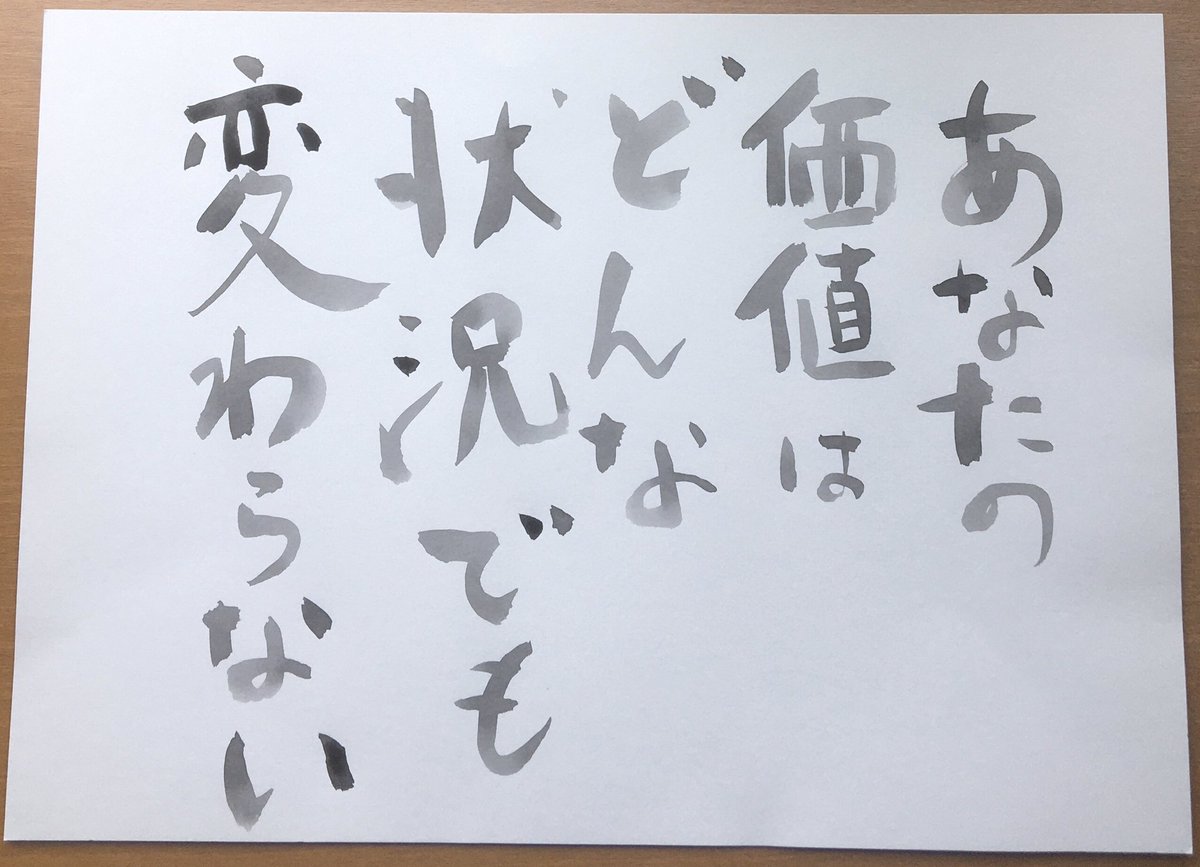 あなたの
価値は
どんな
状況でも
変わらない